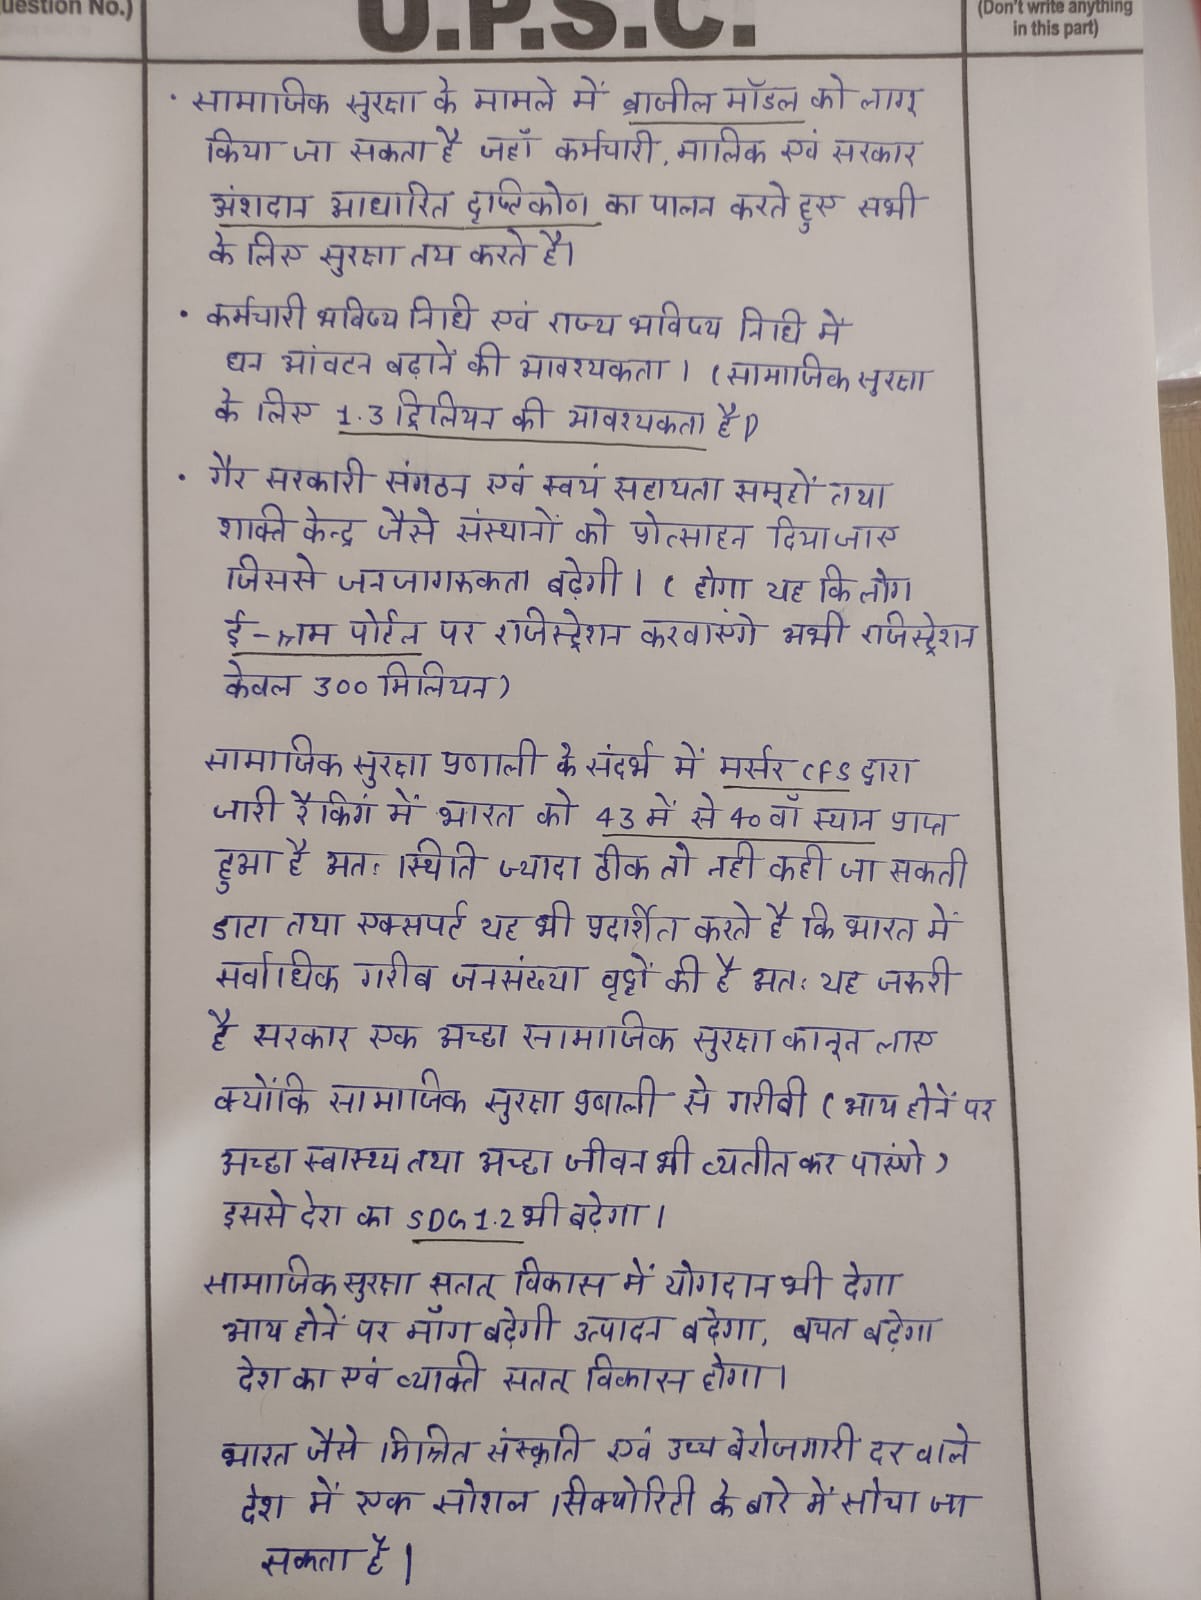 uestion No.)
U.P.S.C.
(Don't write anything
in this part)
• सामाजिक सुरक्षा के मामले में ब्राजील मॉडल को लागू
किया जा सकता है जहाँ कर्मचारी, मालिक एवं सरकार
अंशदान आधारित दृष्टिकोण का पालन करते हुए सभी
के लिए सुरक्षा तय करते है।
• कर्मचारी भविष्य निधि एवं राज्य भविष्य निधि में
धन आंवटन बढ़ानें की आवश्यकता। (सामाजिक सुरक्षा
के लिए 1.3 ट्रिलियन की आवश्यकता है)
• गैर सरकारी संगठन एवं स्वयं सहायता समूहों तथा
शक्ति केन्द्र जैसे संस्थानों को प्रोत्साहन दिया जाए
जिससे जनजागरुकता बढ़ेगी। ( होगा यह कि लोग
ई-श्रम पोर्टल पर रजिस्ट्रेशन करवाएंगे अभी रजिस्ट्रेशन
केवल 300 मिलियन)
सामाजिक सुरक्षा प्रणाली के संदर्भ में मर्सर CFS द्वारा
जारी रैकिंग में भारत को 43 में से 40 वाँ स्थान प्राप्त
हुआ है अतः स्थिति ज्यादा ठीक तो नही कही जा सकती
डाटा तथा एक्सपर्ट यह भी प्रदर्शित करते है कि भारत में
सर्वाधिक गरीब जनसंख्या वृद्दों की है अतः यह जरुरी
है सरकार एक अच्छा सामाजिक सुरक्षा कानून लाए
क्योंकि सामाजिक सुरक्षा प्रबाली से गरीबी ( आय होनें पर
अच्छा स्वास्थ्य तथा अच्छा जीवन भी व्यतीत कर पाएंगे)
इससे देश का SDG 1.2 भी बढ़ेगा।
सामाजिक सुरक्षा सतत् विकास में योगदान भी देगा
आय होनें पर माँग बढ़ेगी उत्पादन बढेगा, बचत बढ़ेगा
देश का एवं व्यक्ति सतत् विकास होगा।
भारत जैसे मिश्रित संस्कृति एवं उच्च बेरोजगारी दर वाले
देश में एक सोशल सिक्योरिटी के बारे में सोचा जा
सकता है।